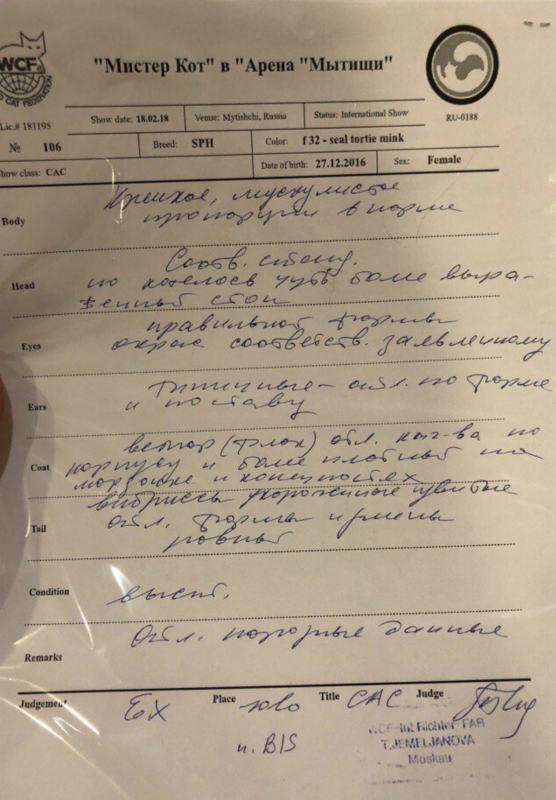 WCF
"Мистер Кот" в "Арена "Мытищи"
Lic.# 181195
Show date: 18.02.18
Venue: Mytishchi, Russia
Status: International Show
RU-0188
№ 106
Breed: SPH
Color: f 32 - seal tortie mink
Date of birth: 27.12.2016
Sex: Female
how class: CAC
Body
Крепкое, мускулистое
пропорции в норме
Head
Соотв. станд.
но хотелось чуть более выра-
женный стоп
Eyes
правильной формы
окрас соответств. заявленному
Ears
типичные - отл. по форме
и поставу
Coat
велюр (флок) отл. кач-ва по
корпусу и более плотный на
мордочке и конечностях
вибриссы укороченные
Tail
отл. формы и длины
ровный
Condition
выст.
Remarks
Отл. породные данные
Judgement
Ex
Place
Title CAC
Judge
н. BIS
WCF-Int Richter-FAR
T.JEMELJANOVA
Moskau